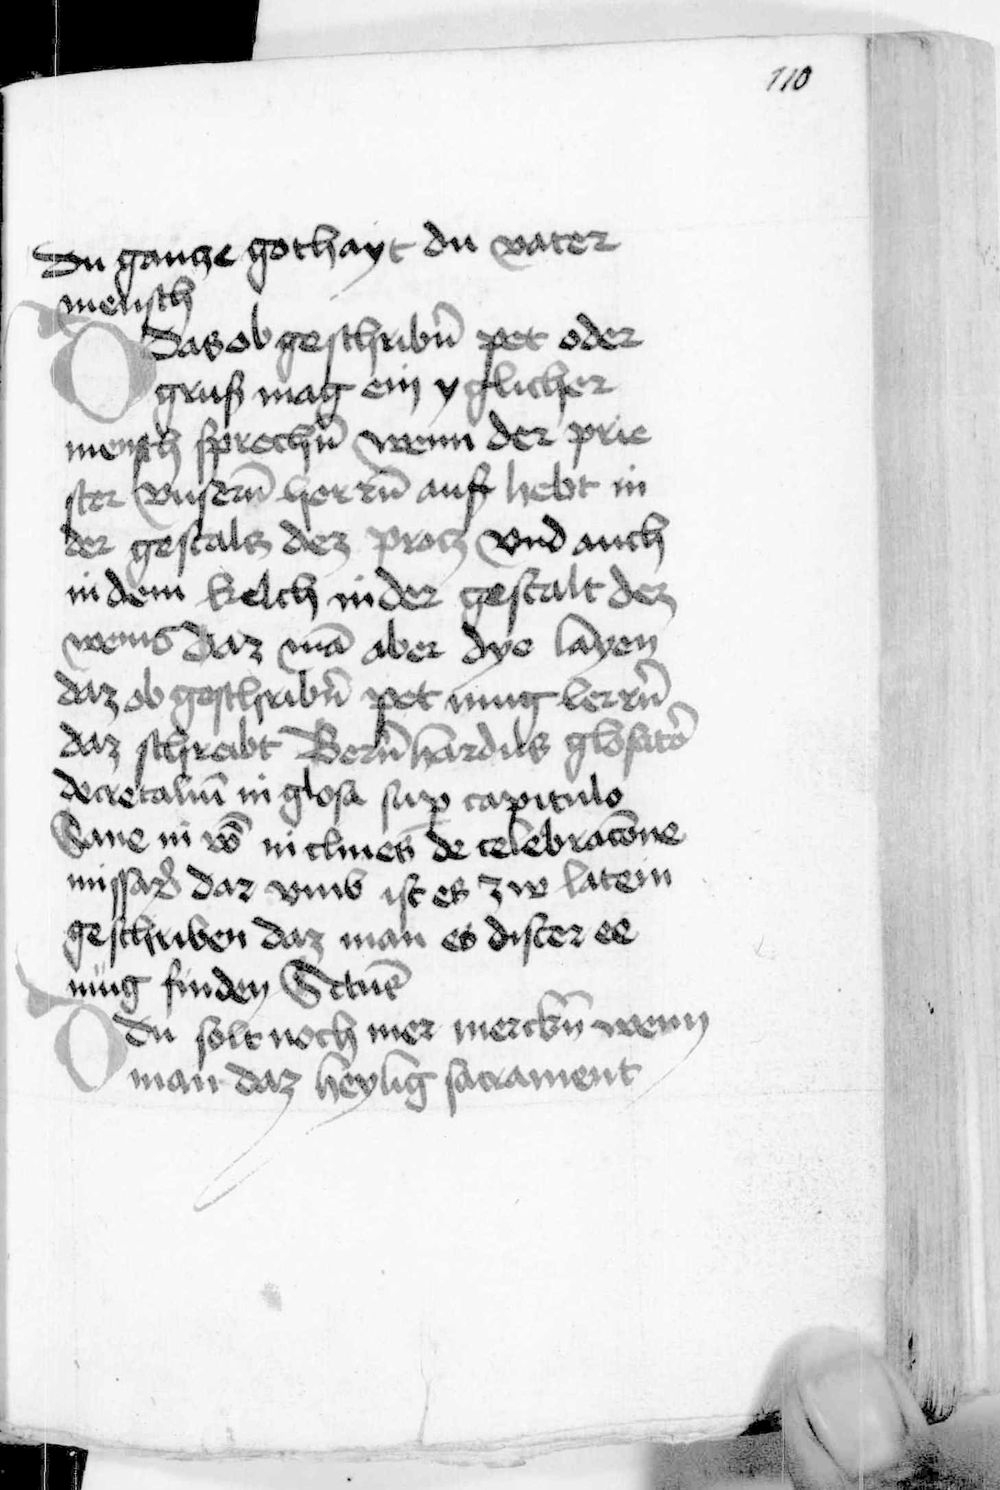 110
Du gancze gothayt du vater
mensch
Das ob geschribn̄ pet oder
grus mag ein yglicher
mensch sprechn̄ wenn der prie
ster vnsern̄ herrn̄ auf hebt in
der gestalt dez procz vnd auch
in dem kelch in der gestalt dez
weins daz mā aber dye layen
daz ob geschribn̄ pet mug lerrn̄
daz schreibt Bern̄hardus glosatō
decretaliū in glosa sup capitulo
Sane in de celebracōne
missaꝝ dar vmb ist es zw latein
geschriben daz man es dister ee
müg finden
Du solt noch mer merckn̄ wenn
man daz heylig sacrament